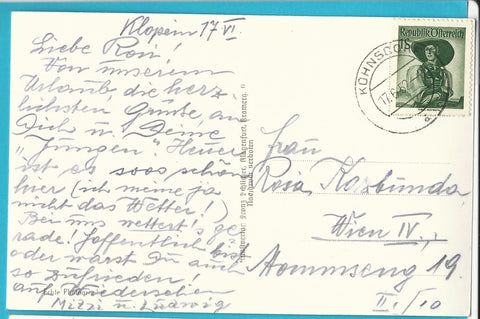 Klopein 17 VI.
Liebe Rosi!
Von unserem
Urlaube die herz-
lichsten Grüße, an
Dich u. Deine
„Jungen“. Heuer
ist es sooo schön
hier (ich meine ja
nicht das Wetter!)
Bei uns wettert's ge-
rade! Hoffentlich bist
oder warst Du auch
so zufrieden!
Auf Wiedersehen
Mitzi u. Ludwig
Echte
Franz Schilcher, Klagenfurt,
Nachdruck verboten
Republik Österreich
KÜHNSDORF
Frau
Rosa
Wien IV.,
19
II./10